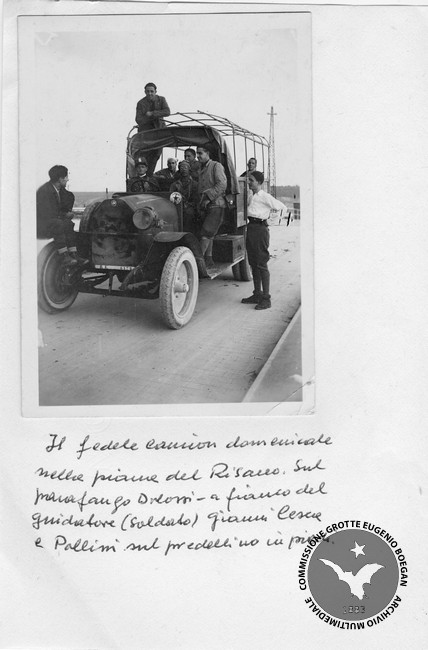 Il fedele camion domenicale
nella piana del Risano. Sul
parafango Dorossi - a fianco del
guidatore (soldato) Gianni Cesca
e Pollini sul predellino in piedi.
COMMISSIONE GROTTE EUGENIO BOEGAN
ARCHIVIO MULTIMEDIALE
1883